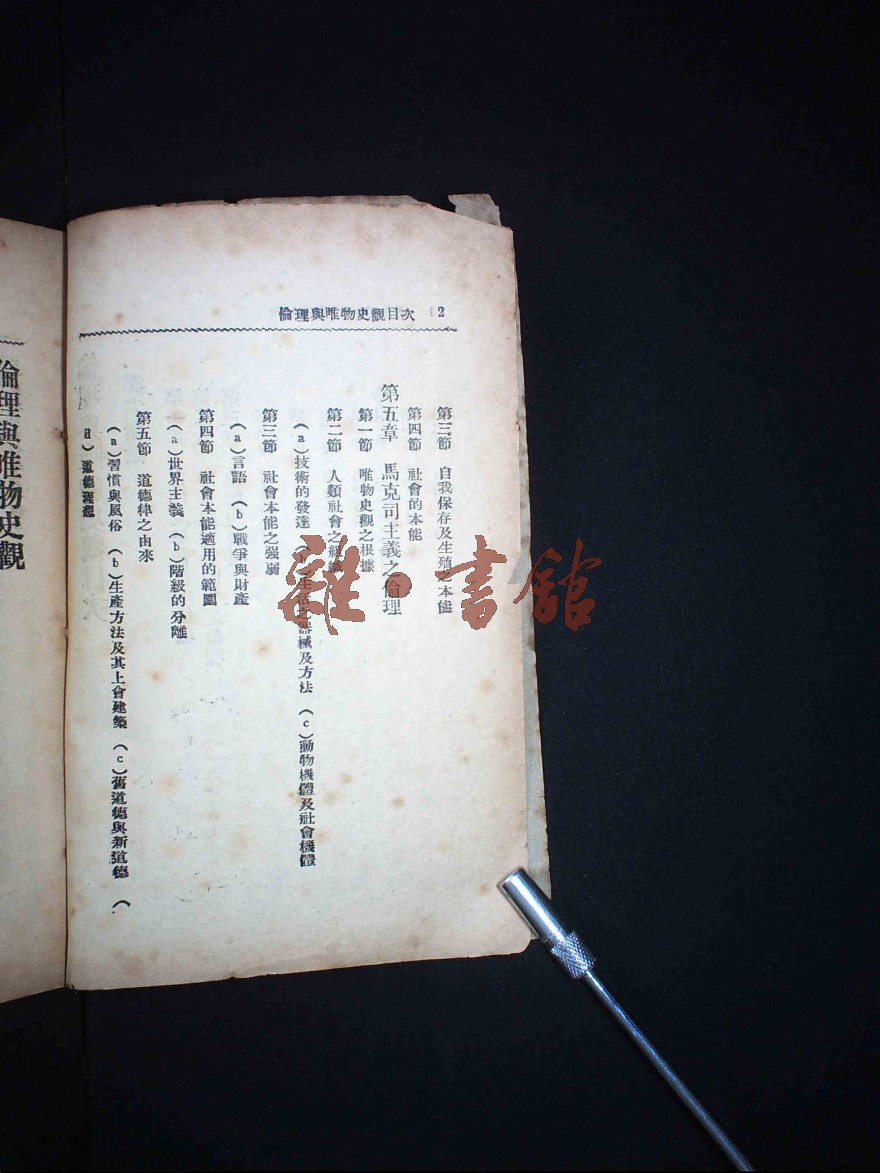 倫理與唯物史觀目次 2
第三節 自我保存及生殖之本能
第四節 社會的本能
第五章 馬克司主義之倫理
第一節 唯物史觀之根據
第二節 人類社會之組織
(a)技術的發達 (b)生活之器械及方法 (c)動物機體及社會機體
第三節 社會本能之强弱
(a)言語 (b)戰爭與財產
第四節 社會本能適用的範圍
(a)世界主義 (b)階級的分離
第五節 道德律之由來
(a)習慣與風俗 (b)生產方法及其上會建築 (c)舊道德與新道德 (
d)道德理想
倫理與唯物史觀
雜·書館